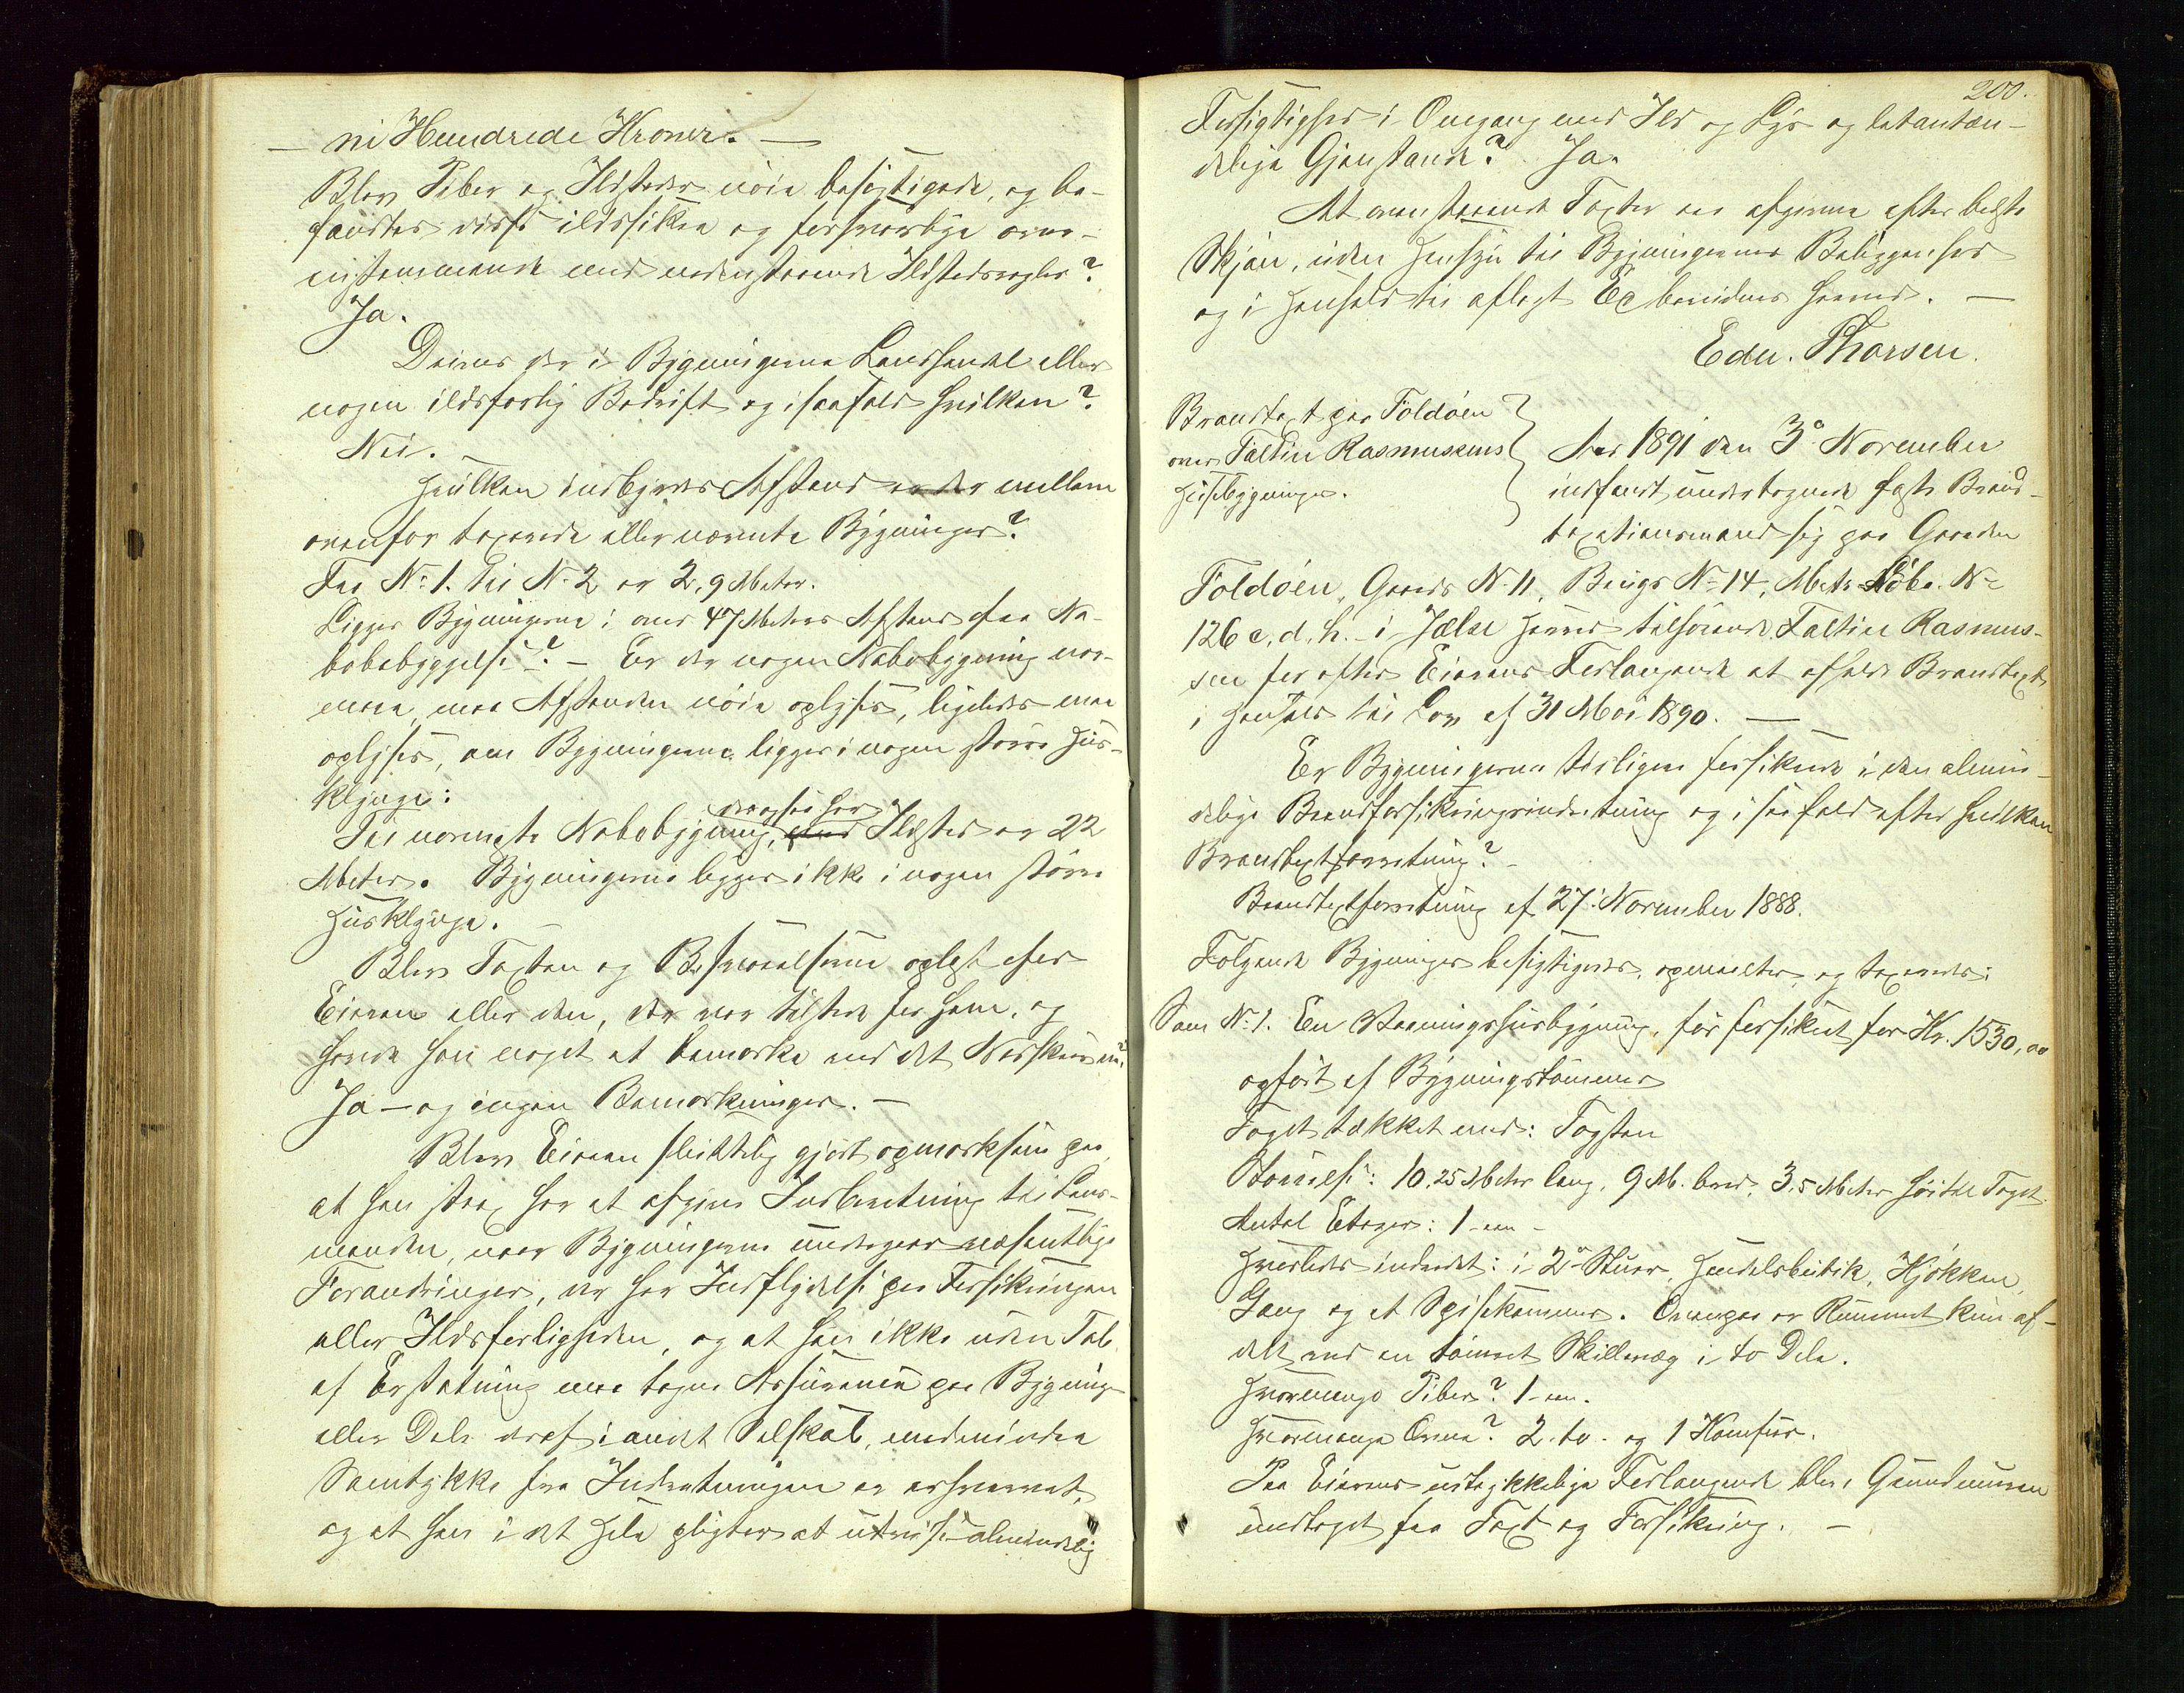 — ni Hundrede Kroner. —
Blev Piber og Ildsteder nöie besigtigede, og be-
fandtes disse ildssikre og forsvarlige over-
ensstemmende med nedenstaaende Ildstedsregler?
Ja.
Drives der i Bygningerne Landhandel eller
nogen ildsfarlig Bedrift og isaafald hvilken?
Nei.
Hvilken indbyrdes Afstand er der mellem
ovenfor taxerede eller nævnte Bygninger?
Fra No 1. til No 2 er 2,9 Meter.
Ligger Bygningerne i over 47 Meters Afstand fra Na-
bobebyggelse? – Er der nogen Nabobygning nær-
mere, maa Afstanden nöie oplyses, ligeledes maa
oplyses, om Bygningerne ligger i nogen större Hus-
klynge:
Til nærmeste Nabobygning, der ogsaa har Ildsted er 22
Meter. Bygningerne ligger ikke i nogen större
Husklynge.
Blev Taxten og Beskrivelserne oplæst for
Eieren eller den, der var tilstede for ham, og
havde han noget at bemærke ved det Nedskrevne?
Ja – og ingen Bemærkninger. –
Blev Eieren skriftlig gjort opmærksom paa,
at han strax har at afgive Indberetning til Lens-
manden, naar Bygningerne undergaar væsentlige
Forandringer, der har Indflydelse paa Forsikringen
eller Ildsfarligheden, og at han ikke uden Tab
af Erstatning maa tegne Assurance paa Bygning
eller Dele deraf i andet Selskab, medmindre
Samtykke fra Indretningen er erhvervet,
og at han i det Hele pligter at udvise almindelig
200.
Forsigtighed i Omgang med Ild og Lys og letantæn-
delige Gjenstande? Ja.
At ovenstaaende Taxter er afgivne efter bedste
Skjön, uden Hensyn til Bygningernes Beliggenhed
og i Henhold til aflagt Ed bevidnes herved. —
Edu. Thorsen.
Brandtaxt paa Foldöen
over Faltin Rasmussens
Husebygninger.
Aar 1891 den 3o November
indfandt undertegnede faste Brand-
taxationsmænd sig paa Gaarden
Foldöen, Gaards No 11, Brugs No 14, Matr. Löbe. No
126 c, d, h. i Jælse Herred tilhörende Faltin Rasmus-
sen for efter Eierens Forlangende at afholde Brandtaxt
i Henhold til Lov af 31 Mai 1890. —
Er Bygningerne tidligere forsikrede i den almin-
delige Brandforsikringsindretning og i saafald efter hvilken
Brandtaxtforretning? –
Brandtaxtforretning af 27. November 1888.
Fölgende Bygninger besigtigedes, opmaaltes og taxeredes:
Som No 1. En Vaaningshusbygning, för forsikret for Kr. 1530,00
opfört af Bygningstömmer
Taget tækket med: Tagsten
Störrelse: 10.25 Meter lang, 9 M. bred, 3,5 Meter höi til Taget
Antal Etager: 1 – een –
Hvorledes indredet: i 2o Stuer, Handelsbutik, Kjökken,
Gang og et Spisekammer. Ovenpaa er Rummet kun af-
delt med en tömret Skillevæg i to Dele.
Hvormange Piber? 1 – een.
Hvormange Ovne? 2. to. og 1 Komfur.
Paa Eierens udtrykkelige Forlangende blev Grundmuren
undtaget fra Taxt og Forsikring. —